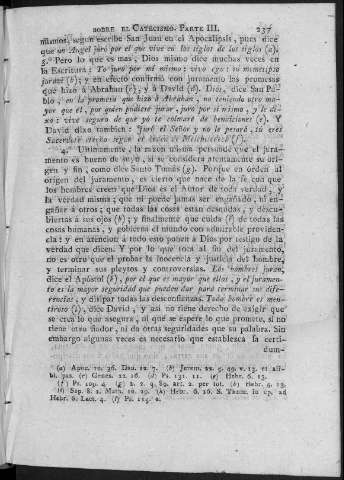 SOBRE EL CATECISMO. PARTE III. 237
mismos, segun escribe San Juan en el Apocalipsis, pues dice
que un Angel juró por el que vive en los siglos de los siglos (a).
3.° Pero lo que es mas, Dios mismo dice muchas veces en
la Escritura: Yo juro por mí mismo: vivo ego: in memetipso
juravi (b); y en efecto confirmó con juramento las promesas
que hizo á Abrahan (c), y á David (d). Dios, dice San Pa-
blo, en la promesa que hizo á Abrahan, no teniendo otro ma-
yor que él, por quien pudiese jurar, juró por sí mismo, y le di-
xo: vive seguro de que yo te colmaré de bendiciones (e). Y
David dixo tambien: Juró el Señor y no le pesará, tú eres
Sacerdote eterno segun el órden de Melchisedech (f).
4.° Ultimamente, la razon misma persuade que el jura-
mento es bueno de suyo, si se considera atentamente su orí-
gen y fin, como dice Santo Tomás (g). Porque en órden al
orígen del juramento, es cierto que nace de la fe con que
los hombres creen que Dios es el Autor de toda verdad, y
la verdad misma; que ni puede jamás ser engañado, ni en-
gañar á otros; que todas las cosas estan desnudas, y descu-
biertas á sus ojos (h); y finalmente que cuida (i) de todas las
cosas humanas, y gobierna el mundo con admirable providen-
cia: y en atencion á todo esto ponen á Dios por testigo de la
verdad que dicen. Y por lo que toca al fin del juramento,
no es otro que el probar la inocencia y justicia del hombre,
y terminar sus pleytos y controversias. Los hombres juran,
dice el Apóstol (k), por el que es mayor que ellos, y el juramen-
to es la mayor seguridad que pueden dar para terminar sus dife-
rencias, y disipar todas las desconfianzas. Todo hombre es men-
tiroso (l), dice David, y así no tiene derecho de exigir que
se crea lo que asegura, ni que se espere lo que promete, si no
tiene otro fiador, ni da otras seguridades que su palabra. Sin
embargo algunas veces es necesario que establezca la certi-
dum-
(a) Apoc. 10. 36. Dan. 12. 7. (b) Jerem. 22. 5. 49. v. 13. et ali-
bi. pas. (c) Genes. 22. 16. (d) Ps. 131. 11. (e) Hebr. 6. 13.
(f) Ps. 109. 4. (g) 2. 2. q. 89. art. 2. per tot. (h) Hebr. 4. 13.
(i) Sap. 8. 1. Math. 10. 29. (k) Hebr. 6. 16. S. Thom. in cp. ad
Hebr. 6. Lect. 4. (l) Ps. 115. 2.